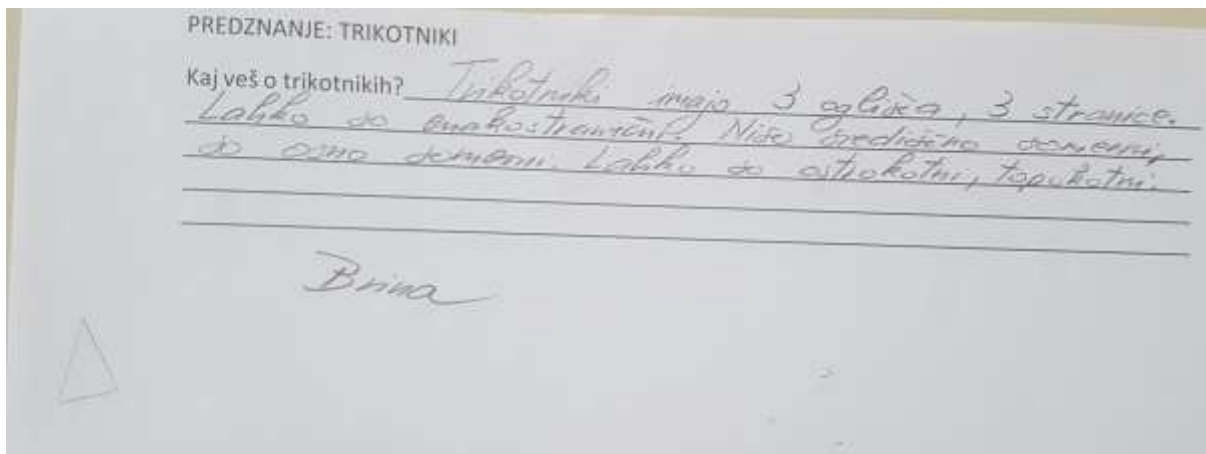 PREDZNANJE: TRIKOTNIKI
Kaj veš o trikotnikih? Trikotniki imajo 3 oglišča, 3 stranice.
Lahko so enakostranični. Niso središčno somerni,
so osno somerni. Lahko so ostrokotni, topokotni.
Brina